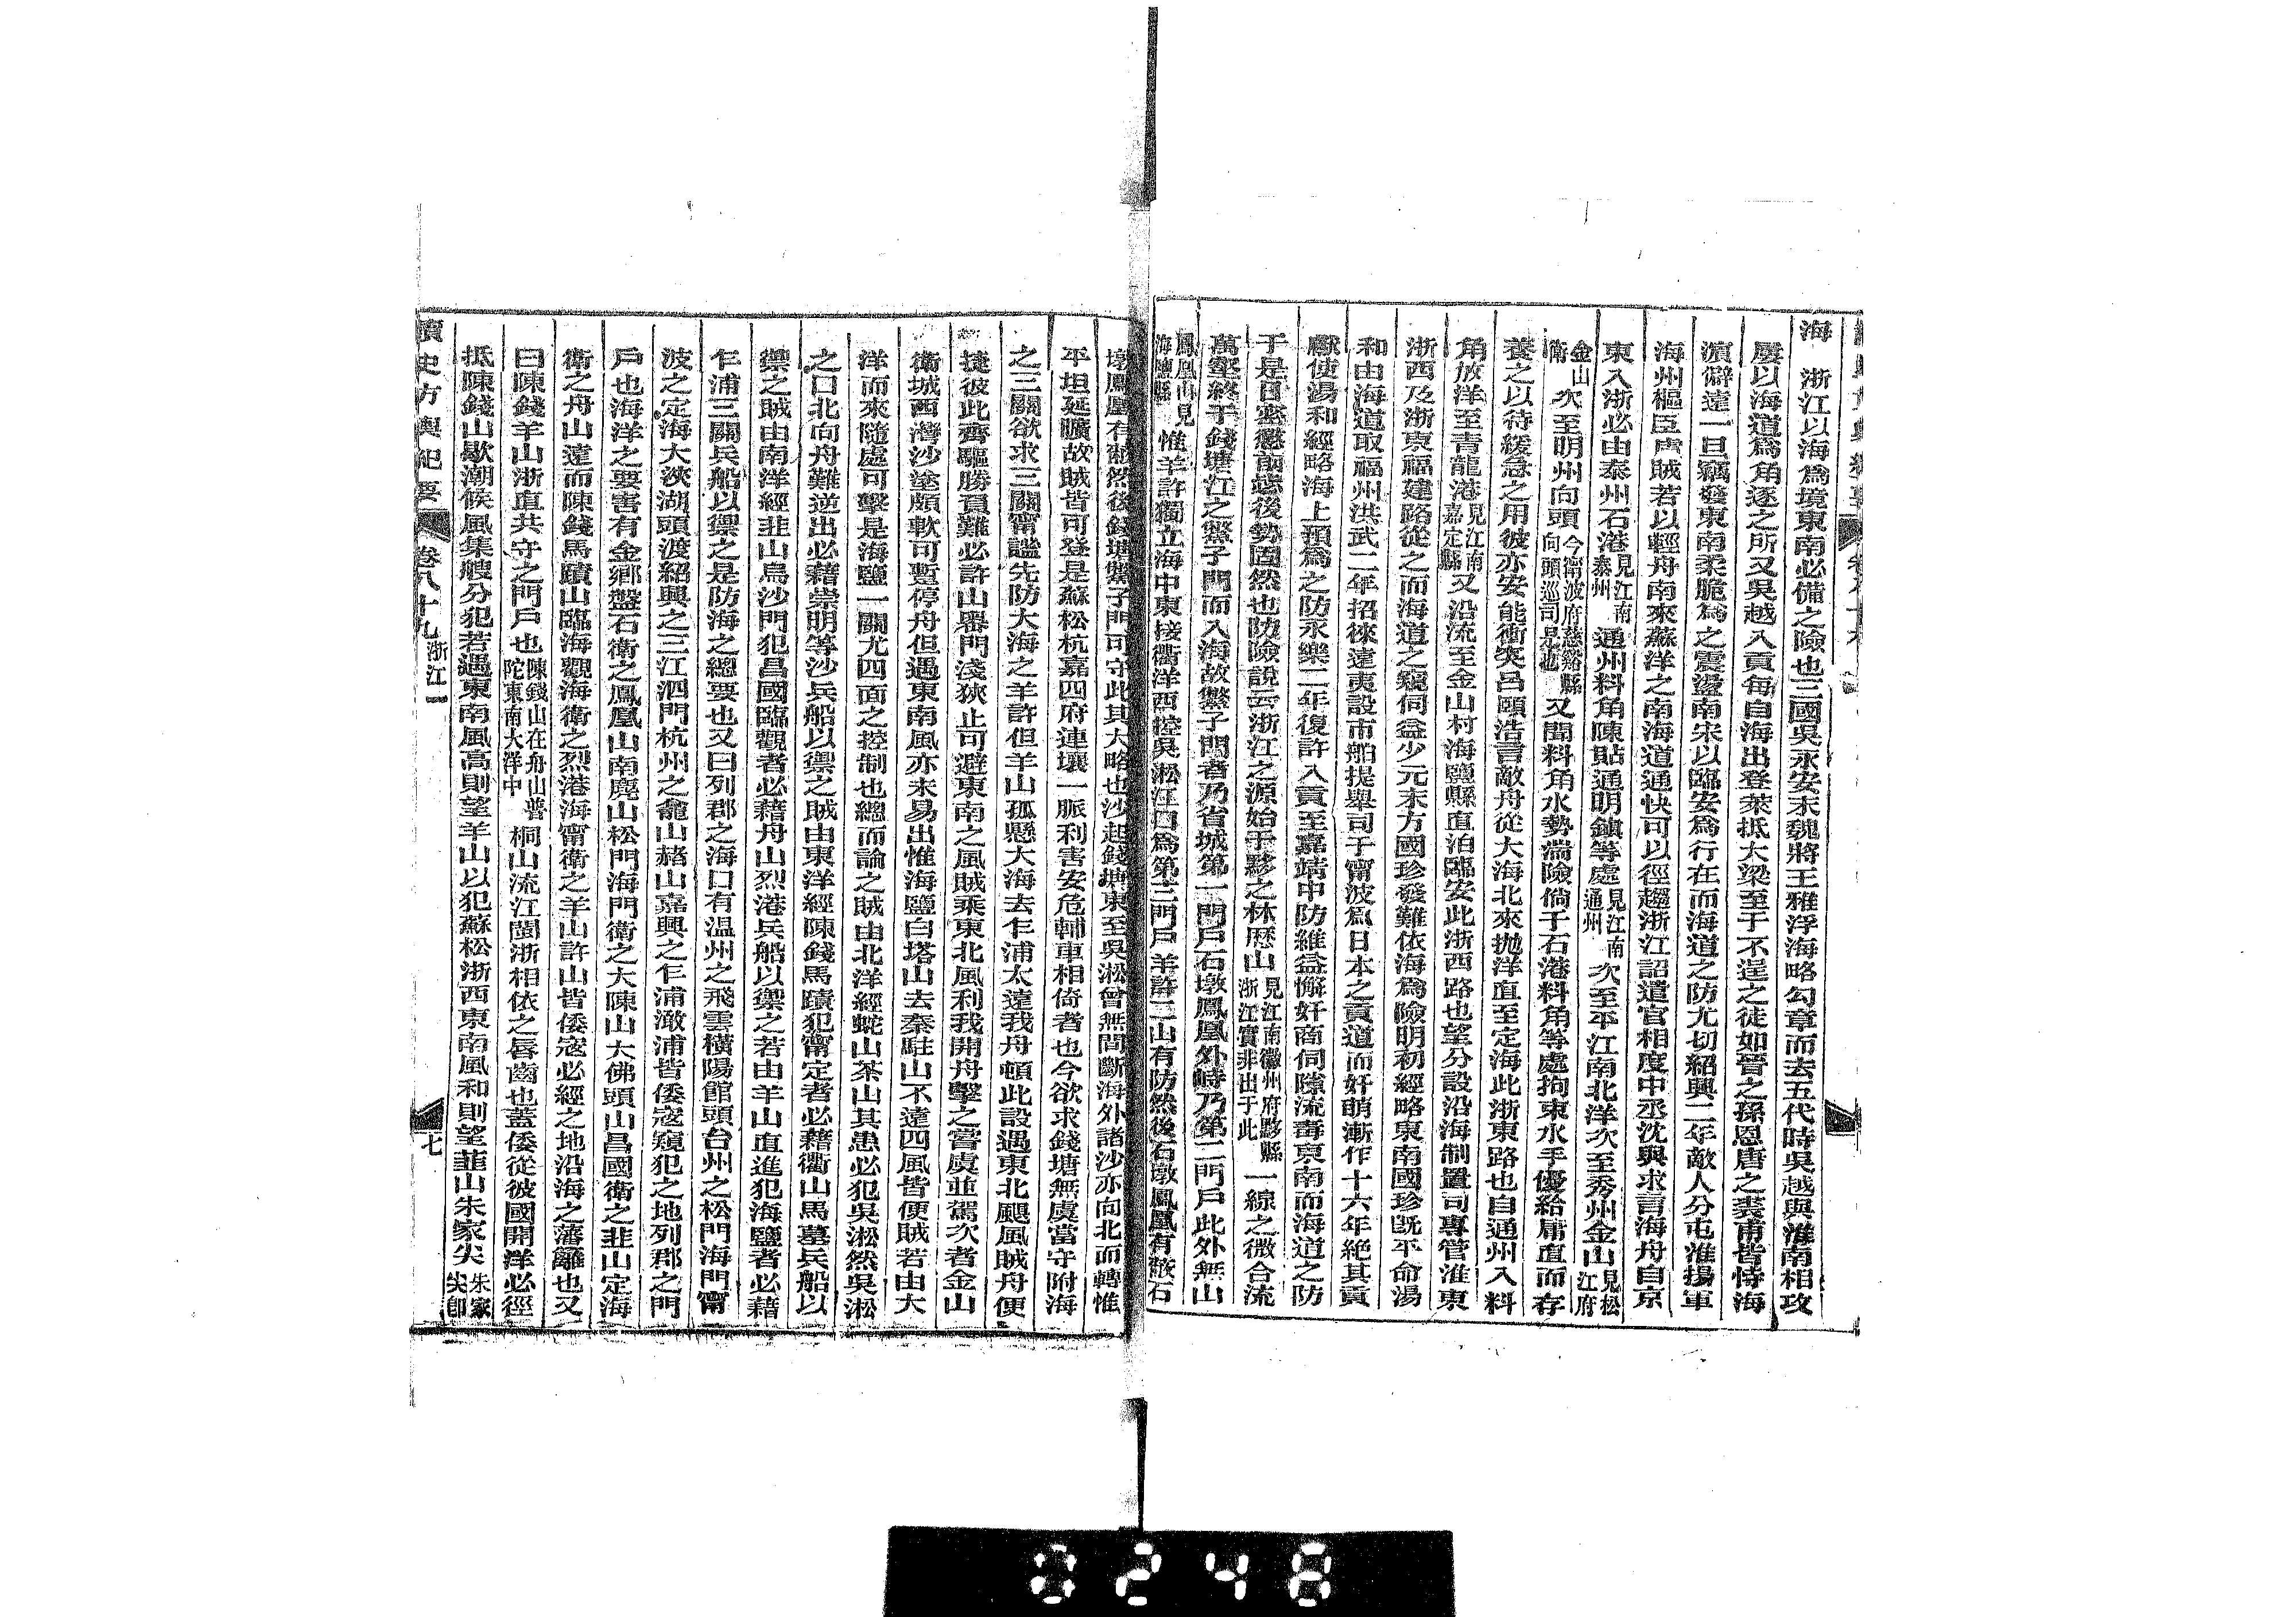 海　浙江以海爲境東南必備之險也三國吳永安末魏將王雅浮海略勾章而去五代時吳越與淮南相攻
屡以海道爲角逐之所又吳越入貢每自海出登萊抵大梁至于不逞之徒如晉之孫恩唐之裘甫皆恃海
濱僻遠一旦竊發東南柔脆爲之震盪南宋以臨安爲行在而海道之防尤切紹興二年敵人分屯淮揚軍
海州樞臣虞賊若以輕舟南來蘇洋之南海道通快可以徑趨浙江詔遣官相度中丞沈與求言海舟自京
東入浙必由泰州石港見江南泰州通州料角陳貼通明鎮等處見江南通州次至平江南北洋次至秀州金山見松江府
金山衛次至明州向頭今甯波府慈谿縣向頭巡司是也又聞料角水勢湍險倘于石港料角等處拘東水手優給庸直而存
養之以待緩急之用彼亦安能衝突呂頤浩言敵舟從大海北來抛洋直至定海此浙東路也自通州入料
角放洋至青龍港見江南嘉定縣又沿流至金山村海鹽縣直泊臨安此浙西路也望分設沿海制置司專管淮東
浙西及浙東福建路從之而海道之窺伺益少元末方國珍發難依海爲險明初經略東南國珍旣平命湯
和由海道取福州洪武二年招徠遠夷設市舶提舉司于甯波爲日本之貢道而奸萌漸作十六年絶其貢
獻使湯和經略海上預爲之防永樂二年復許入貢至嘉靖中防維益懈奸商伺隙流毒東南而海道之防
于是日密懲前毖後勢固然也防險說云浙江之源始于黟之林歷山見江南徽州府黟縣浙江實非出于此一線之微合流
萬壑終于錢塘江之鱉子門而入海故鱉子門者乃省城第一門戶石墩鳳凰外峙乃第二門戶此外無山
鳳凰山見海鹽縣惟羊許獨立海中東接衢洋西控吳淞江口爲第三門戶羊許二山有防然後石墩鳳凰有蔽石
墩鳳凰有蔽然後錢塘鱉子門可守此其大略也沙起錢塘東至吳淞曾無間斷海外諸沙亦向北而轉惟
平坦延曠故賊皆可登是蘇松杭嘉四府連壤一脈利害安危輔車相倚者也今欲求錢塘無虞當守附海
之三關欲求三關甯謐先防大海之羊許但羊山孤懸大海去乍浦太遠我舟頓此設遇東北颶風賊舟便
捷彼此齊驅勝負難必許山舉門淺狹止可避東南之風賊乘東北風利我開舟擊之嘗虞並駕次者金山
衛城西灣沙塗頗軟可暫停舟但遇東南風亦未易出惟海鹽白塔山去秦駐山不遠四風皆便賊若由大
洋而來隨處可擊是海鹽一關尤四面之控制也總而論之賊由北洋經蛇山茶山其患必犯吳淞然吳淞
之口北向舟難逆出必藉崇明等沙兵船以禦之賊由東洋經陳錢馬蹟犯甯定者必藉衢山馬墓兵船以
禦之賊由南洋經韭山烏沙門犯昌國臨觀者必藉舟山烈港兵船以禦之若由羊山直進犯海鹽者必藉
乍浦三關兵船以禦之是防海之總要也又曰列郡之海口有溫州之飛雲橫陽館頭台州之松門海門甯
波之定海大浹湖頭渡紹興之三江泗門杭州之龕山赭山嘉興之乍浦澉浦皆倭寇窺犯之地列郡之門
戶也海洋之要害有金鄉盤石衛之鳳凰山南麂山松門海門衛之大陳山大佛頭山昌國衛之韭山定海
衛之舟山遠而陳錢馬蹟山臨海觀海衛之烈港海甯衛之羊山許山皆倭寇必經之地沿海之藩籬也又
曰陳錢羊山浙直共守之門戶也陳錢山在舟山普陀東南大洋中桐山流江閩浙相依之唇齒也蓋倭從彼國開洋必徑
抵陳錢山歇潮候風集艘分犯若遇東南風高則望羊山以犯蘇松浙西東南風和則望韭山朱家尖朱家尖卽
讀史方輿紀要　卷八十九　浙江一　七